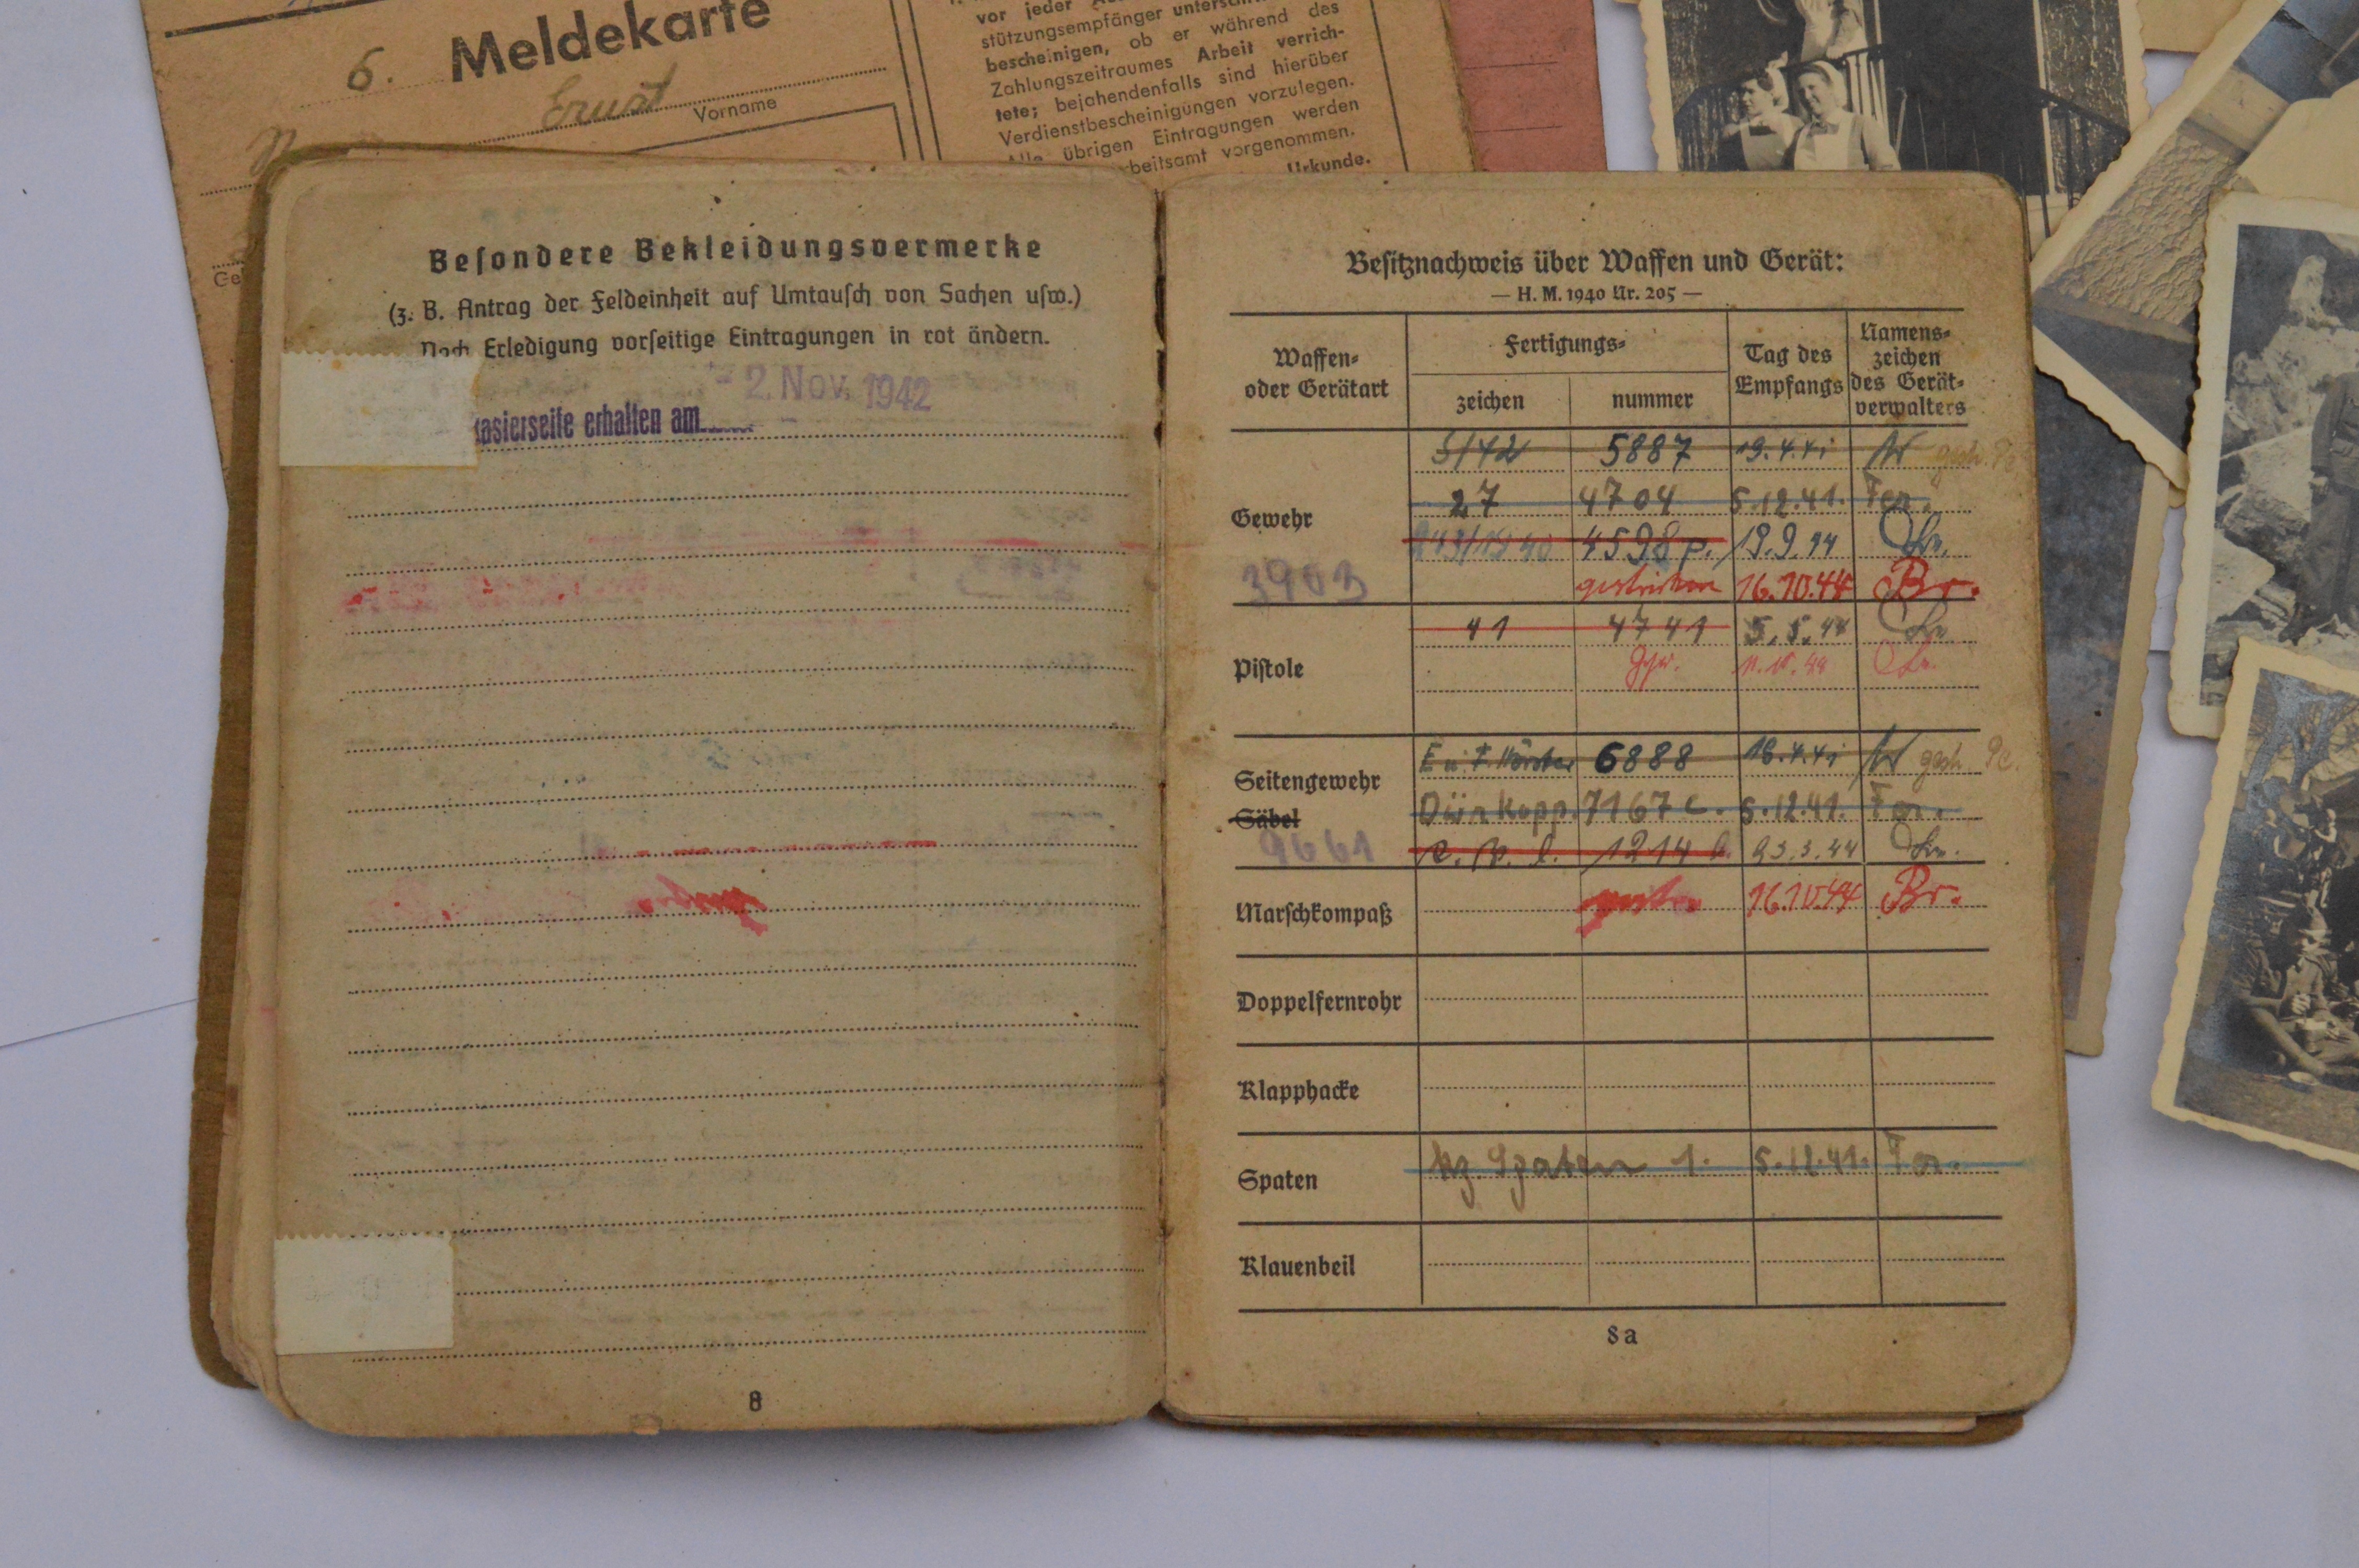 6. Meldekarte
Ernst
Vorname
vor jeder
stützungsempfänger
bescheinigen, ob er während des
Zahlungszeitraumes Arbeit verrich-
tete; bejahendenfalls sind hierüber
Verdienstbescheinigungen vorzulegen.
Alle übrigen Eintragungen werden
vorgenommen.
Urkunde.
Beſondere Bekleidungsvermerke
(z. B. Antrag der Feldeinheit auf Umtauſch von Sachen uſw.)
Nach Erledigung vorſeitige Eintragungen in rot ändern.
- 2. Nov. 1942
asierseife erhalten am
8
Beſitznachweis über Waffen und Gerät:
— H. M. 1940 Nr. 205 —
Waffen- oder Gerätart
Fertigungs-
zeichen
nummer
Tag des Empfangs
Namens- zeichen des Gerät- verwalters
Gewehr
S/42 5887 19.4.41
27 4704 5.12.41. For.
243/1940 4598 p. 19.9.44
gestrichen 16.10.44 Br.
3903
Pistole
41 4741 5.5.44
Seitengewehr
Säbel
E u. F. Hörster 6888 18.4.41 gestr.
Dürkopp. 7167 c. 5.12.41. For.
1214 23.3.44
9661
Marschkompaß
gestr. 16.10.44 Br.
Doppelfernrohr
Klapphacke
Spaten
kz. Spaten 1. 5.12.41. For.
Klauenbeil
8a